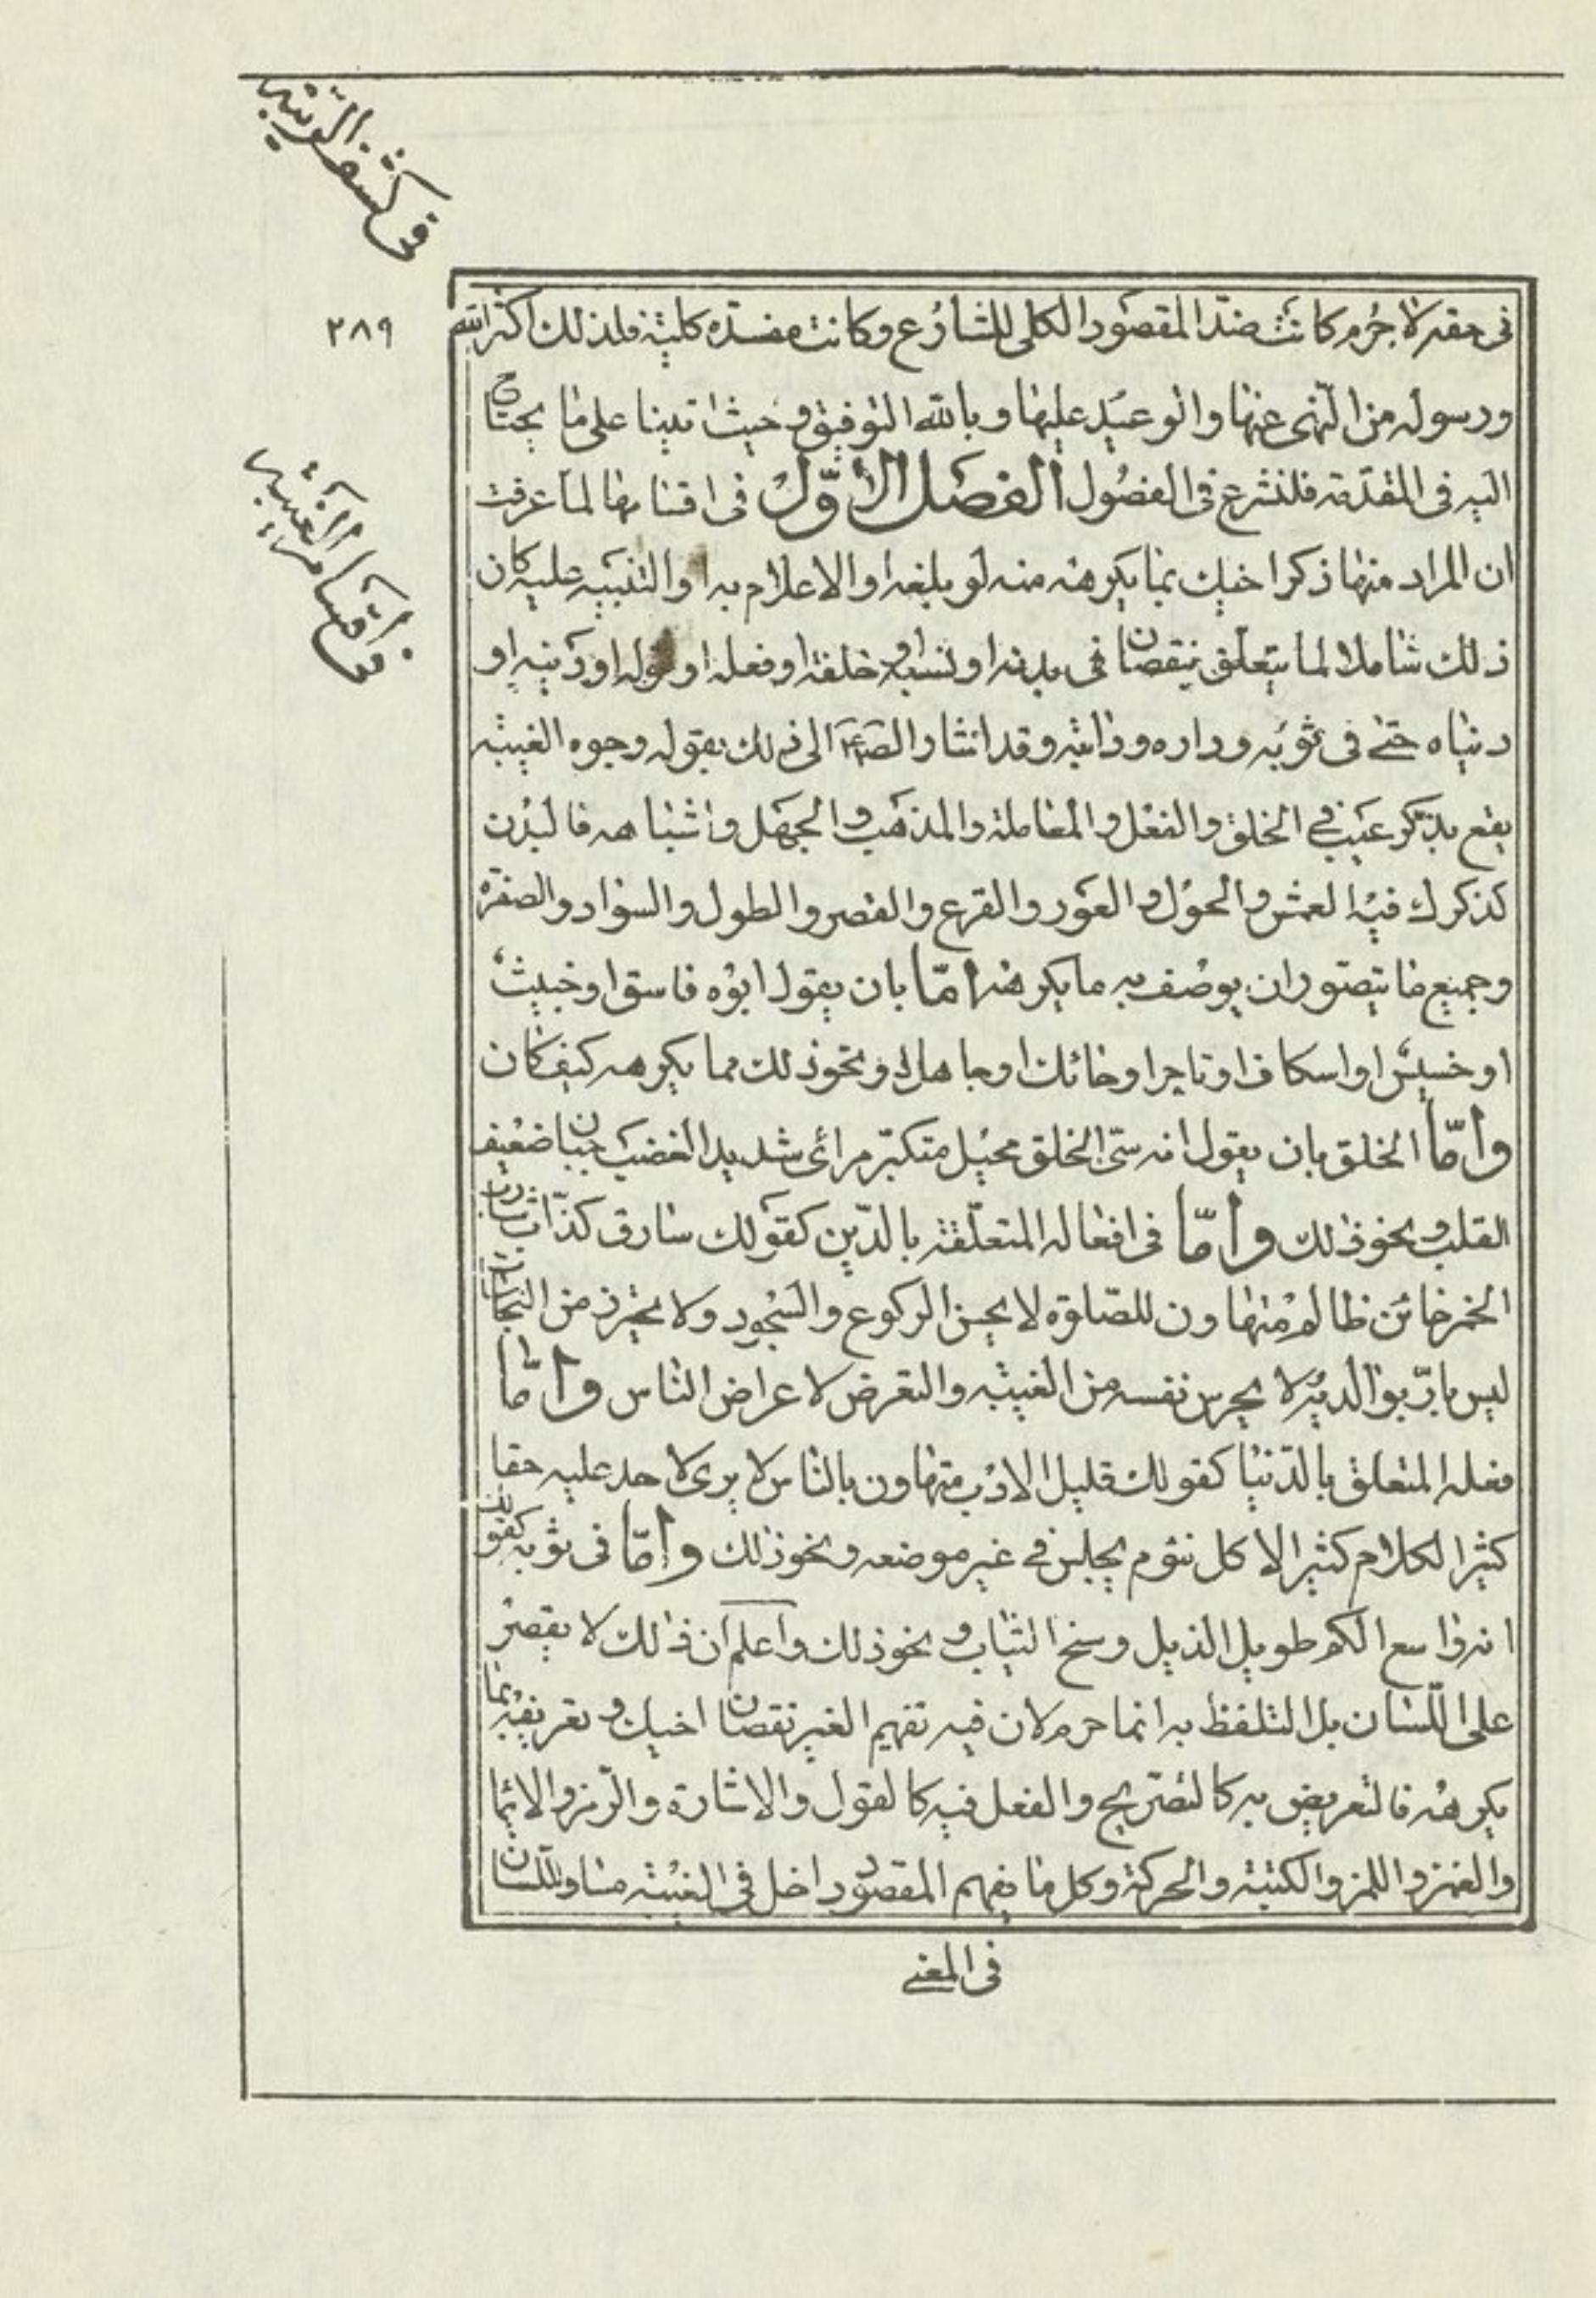 في كشف الريبه
٢٨٩
في حقه لا جرم كانت ضد المقصود الكلى للشارع وكانت مفسدة كلية فلذلك اكثر الله
ورسوله من النهى عنها والوعيد عليها وبالله التوفيق وحيث اتينا على ما يحتاج
اليه فى المقدمة فلنشرع فى الفصول الفصل الاول فى اقسامها لما عرفت
في اقسام الغيبه
ان المراد منها ذكر اخيك بما يكرهه منه لو بلغه او الاعلام به او التنبيه عليه كان
ذلك شاملا لما يتعلق بنقصان فى بدنه او نسبه او خلقه او فعله او قوله او دينه او
دنياه حتى فى ثوبه وداره ودابته وقد اشار الصادق ع الى ذلك بقوله وجوه الغيبة
يقع بذكر عيب في الخلق والفعل والمعاملة والمذهب والجهل واشباهه فالبدن
كذكرك فيه العمش والحول والعور والقرع والقصر والطول والسواد والصفرة
وجميع ما يتصور ان يوصف به ما يكرهه اما بان يقول ابوه فاسق او خبيث
او خسيس او اسكاف او تاجر او حائك او جاهل او نحو ذلك مما يكرهه كيف كان
واما الخلق بان يقول انه سئ الخلق بخيل متكبر مرائى شديد الغضب جبان ضعيف
القلب ونحو ذلك واما فى افعاله المتعلقة بالدين كقولك سارق كذاب شارب
الخمر خائن ظالم متهاون للصلوة لا يحسن الركوع والسجود ولا يحترز من النجاسات
ليس بارّ بوالديه لا يحرس نفسه من الغيبة والتعرض لاعراض الناس واما
فعله المتعلق بالدنيا كقولك قليل الادب متهاون بالناس لا يرى لاحد عليه حقا
كثير الكلام كثير الاكل نئوم يجلس في غير موضعه ونحو ذلك واما فى ثوبه كقولك
انه واسع الكم طويل الذيل وسخ الثياب ونحو ذلك واعلم ان ذلك لا يقصر
على اللسان بل التلفظ به انما حرم لان فيه تفهيم الغير نقصان اخيك وتعريفه بما
يكرهه فالتعريض به كالتصريح والفعل فيه كالقول والاشارة والرمز والايماء
والغمز واللمز والكتبة والحركة وكل ما يفهم المقصود داخل فى الغيبة مساو للسان
فى المعنى